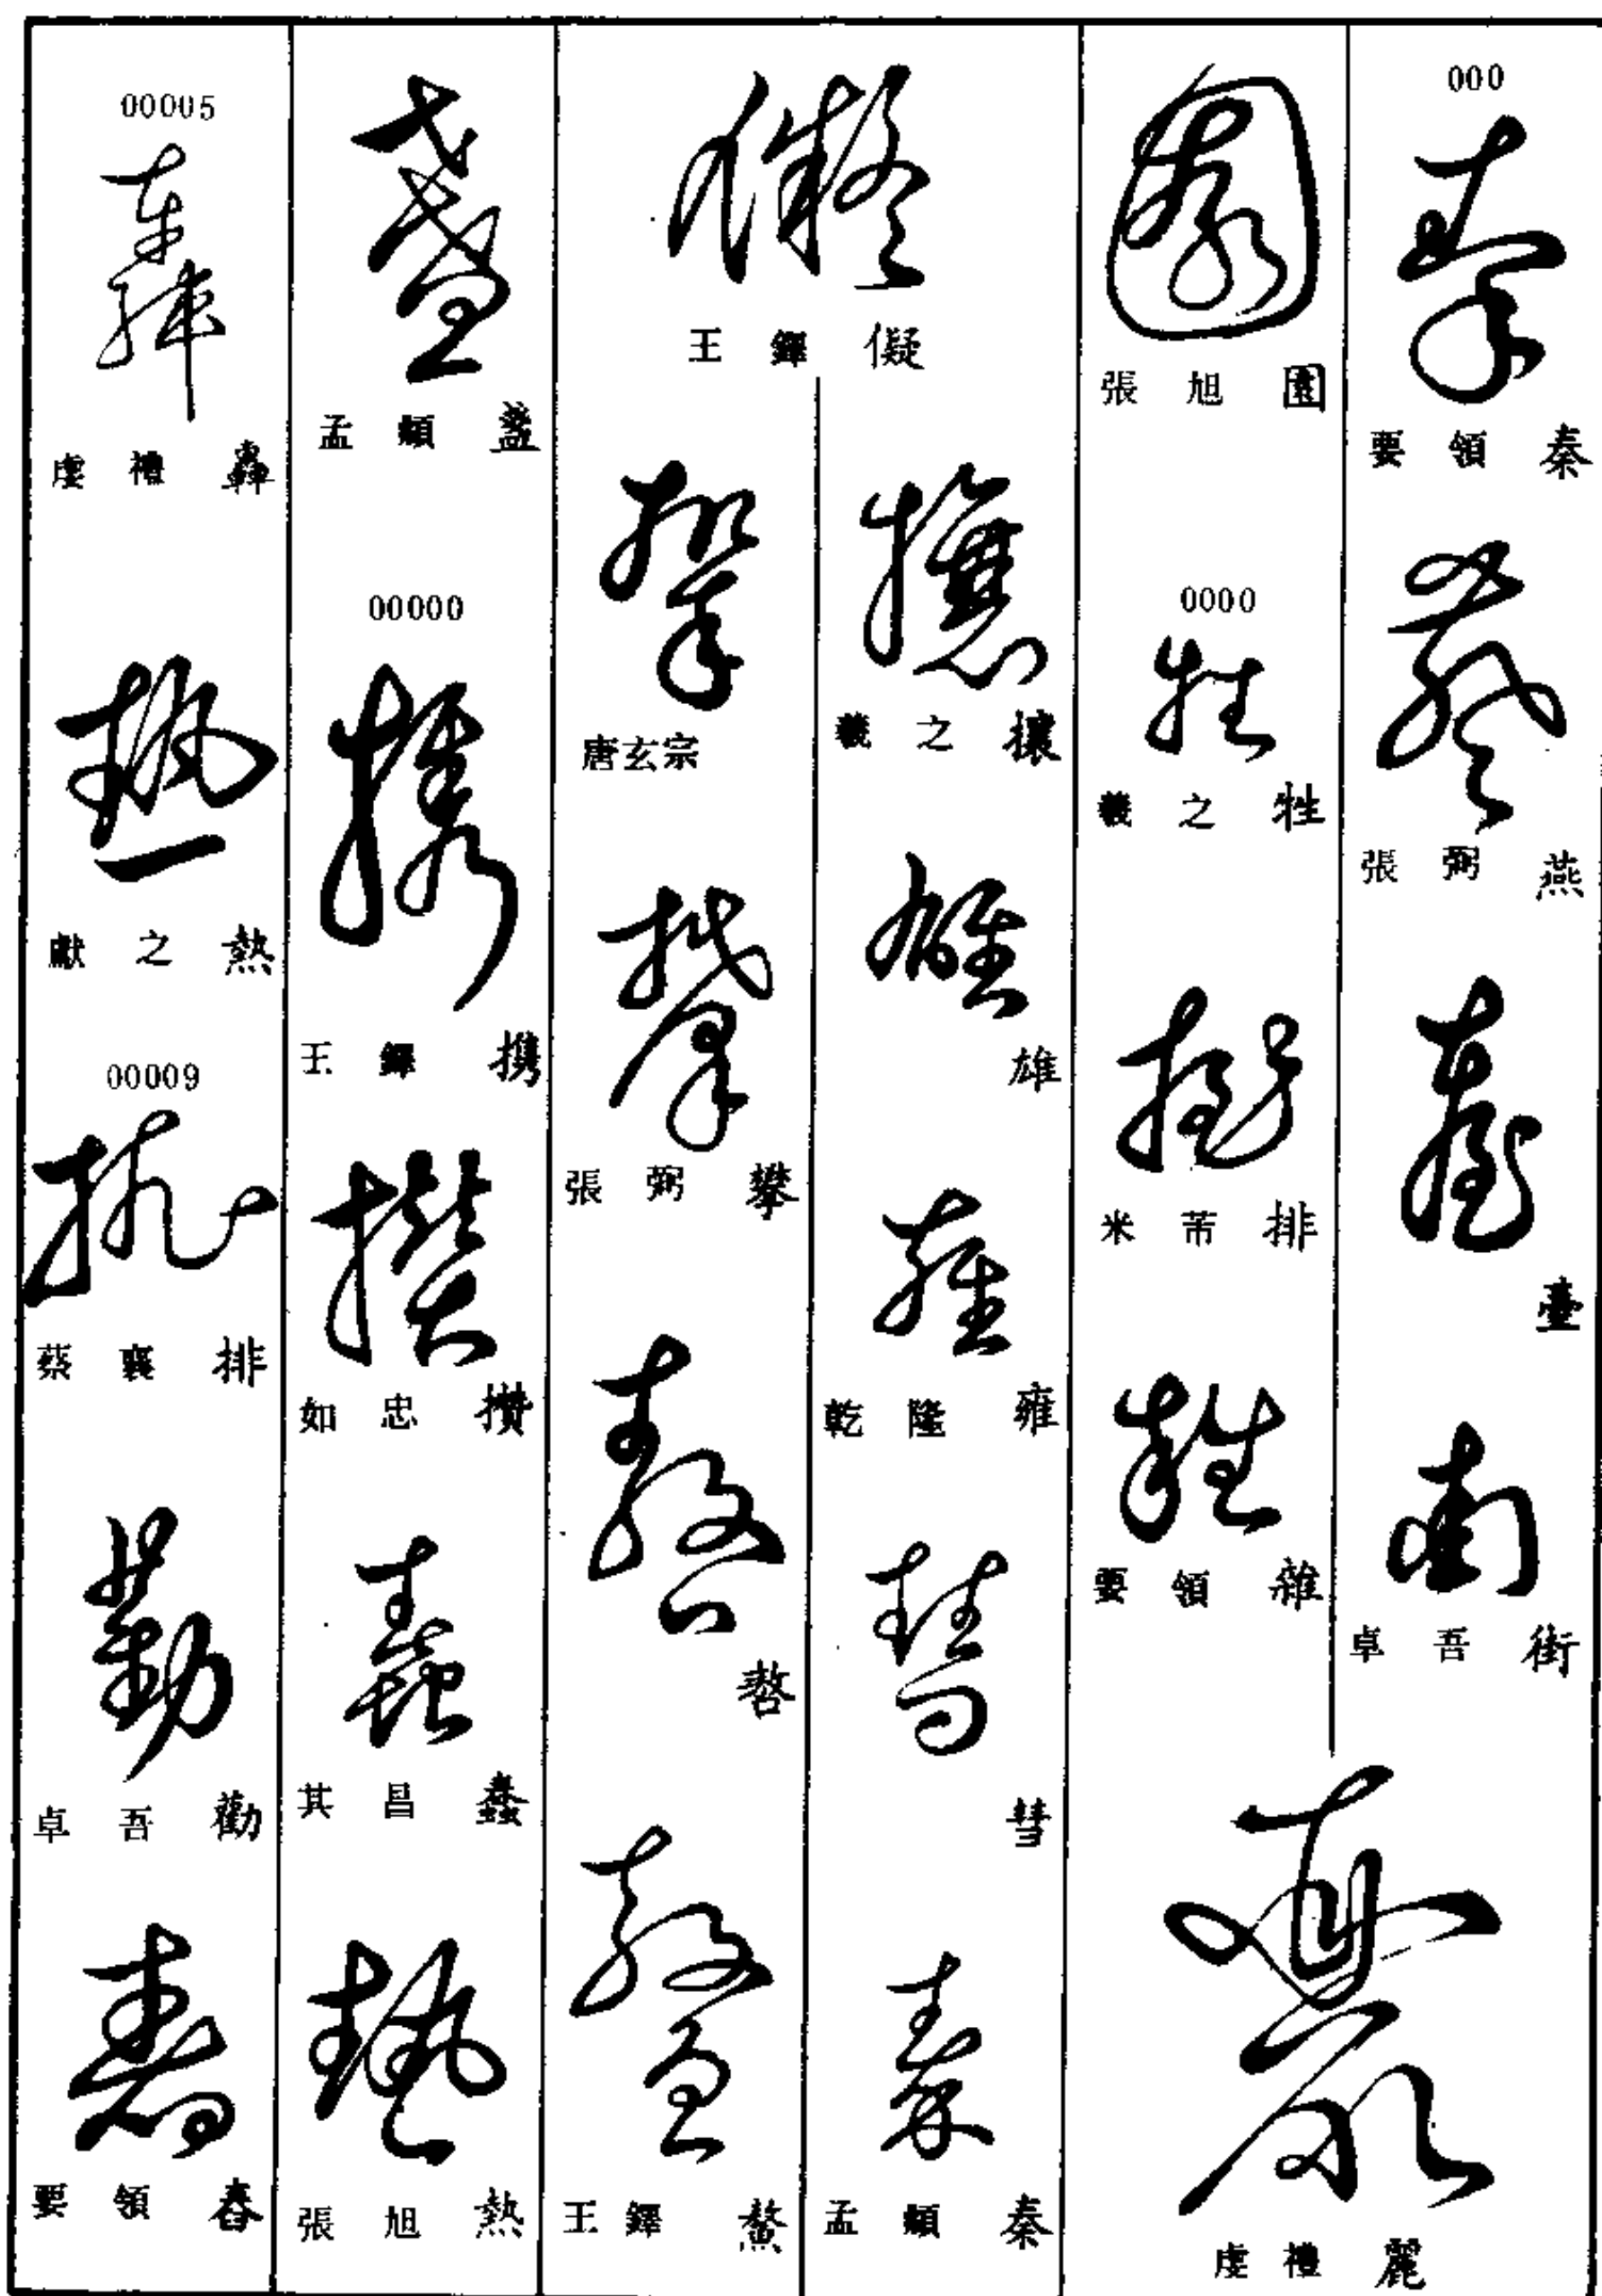 000
要領 秦
張弼 燕
臺
卓吾 街
張旭 園
0000
羲之 牲
米芾 排
要領 雜
虔禮 麗
王鐸 儗
羲之 攘
雄
乾隆 雍
彗
孟頫 秦
唐玄宗
張弼 攀
嶅
王鐸 鰲
孟頫 盞
00000
王鐸 携
如忠 攢
其昌 蠢
張旭 熱
00005
虔禮 轟
獻之 熱
00009
蔡襄 排
卓吾 勸
要領 舂